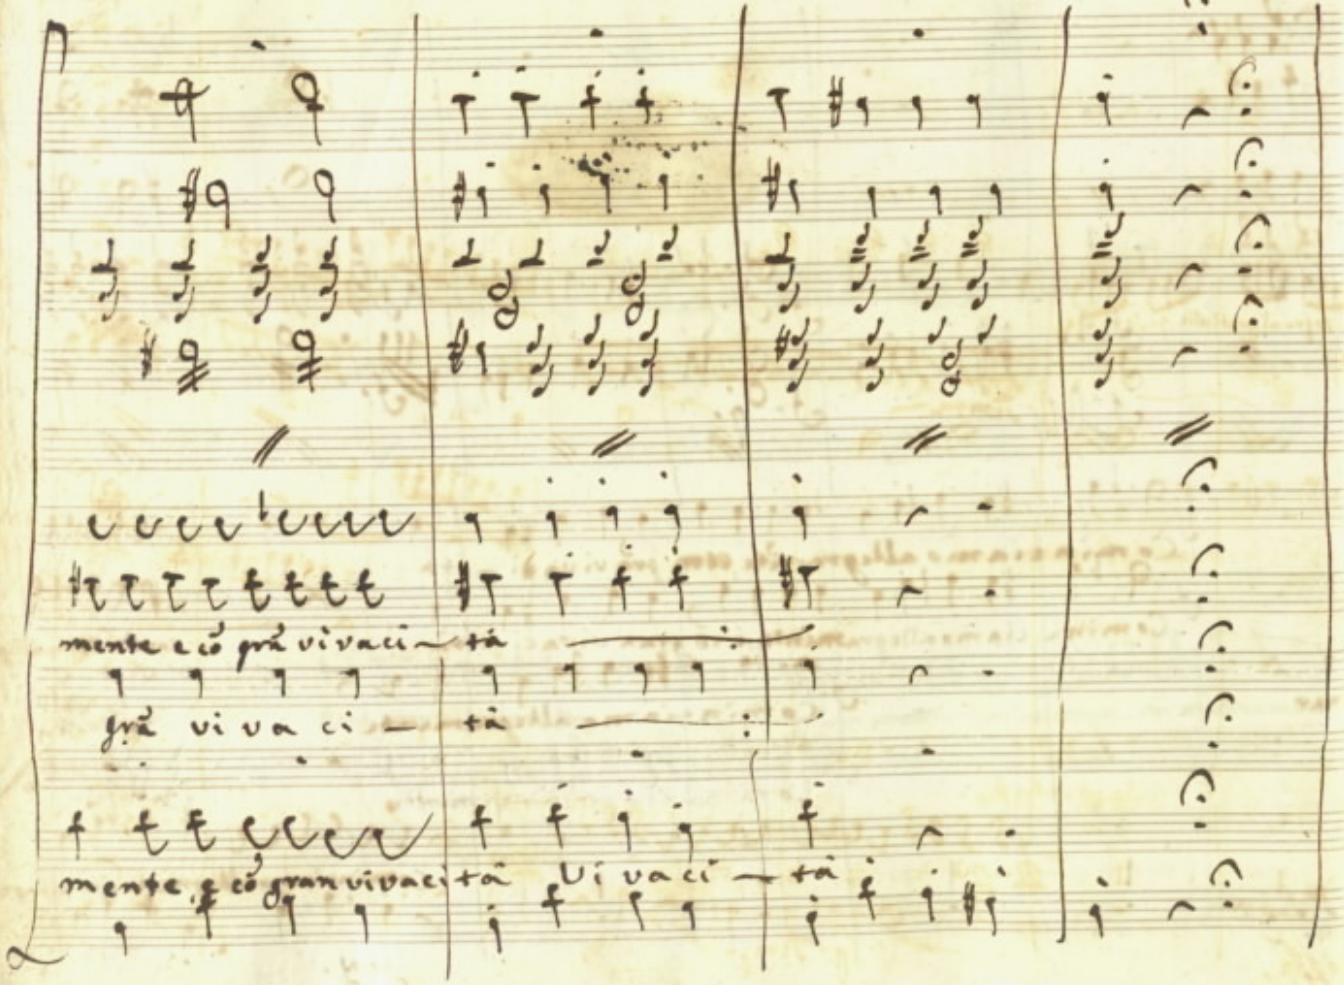 mente e cõ grã vivaci — tà
grã vi va ci — tà
mente e cõ gran vivaci tà Vi va ci — tà